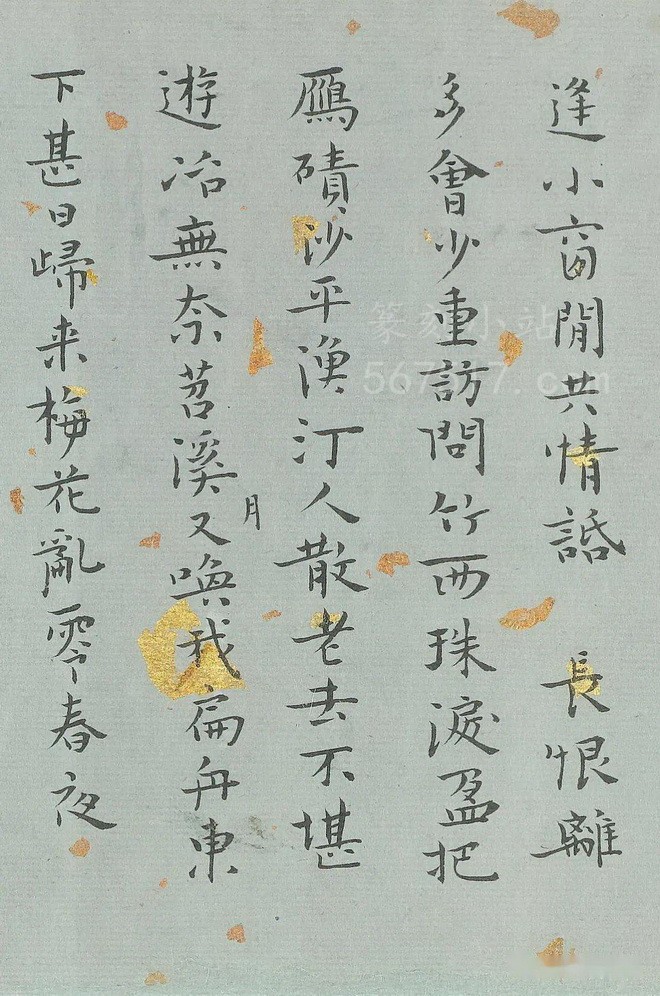 逢小窗閒共情話 長恨離
多會少重訪問竹西珠淚盈把
鴈磧沙平漁汀人散老去不堪
遊冶無奈苕溪又喚我扁舟東
月
下甚日歸来梅花亂零春夜
篆刻小站